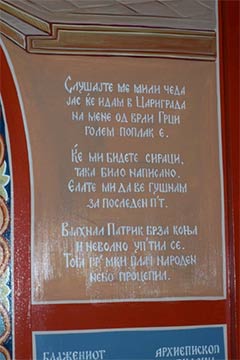 Слушајте ме мили чеда
јас ќе идам в Цариграда
на мене од врли Грци
голем поплак е.
Ќе ми бидете сираци,
така било написано.
Елате ми да ве гушнам
за последен п'т.
Вјахнал Патрик брза коња
и неволно уп'тил се.
Това гр'мки плач народен
небо процепил.
БЛАЖЕНИОТ
АРХИЕПИСКОП